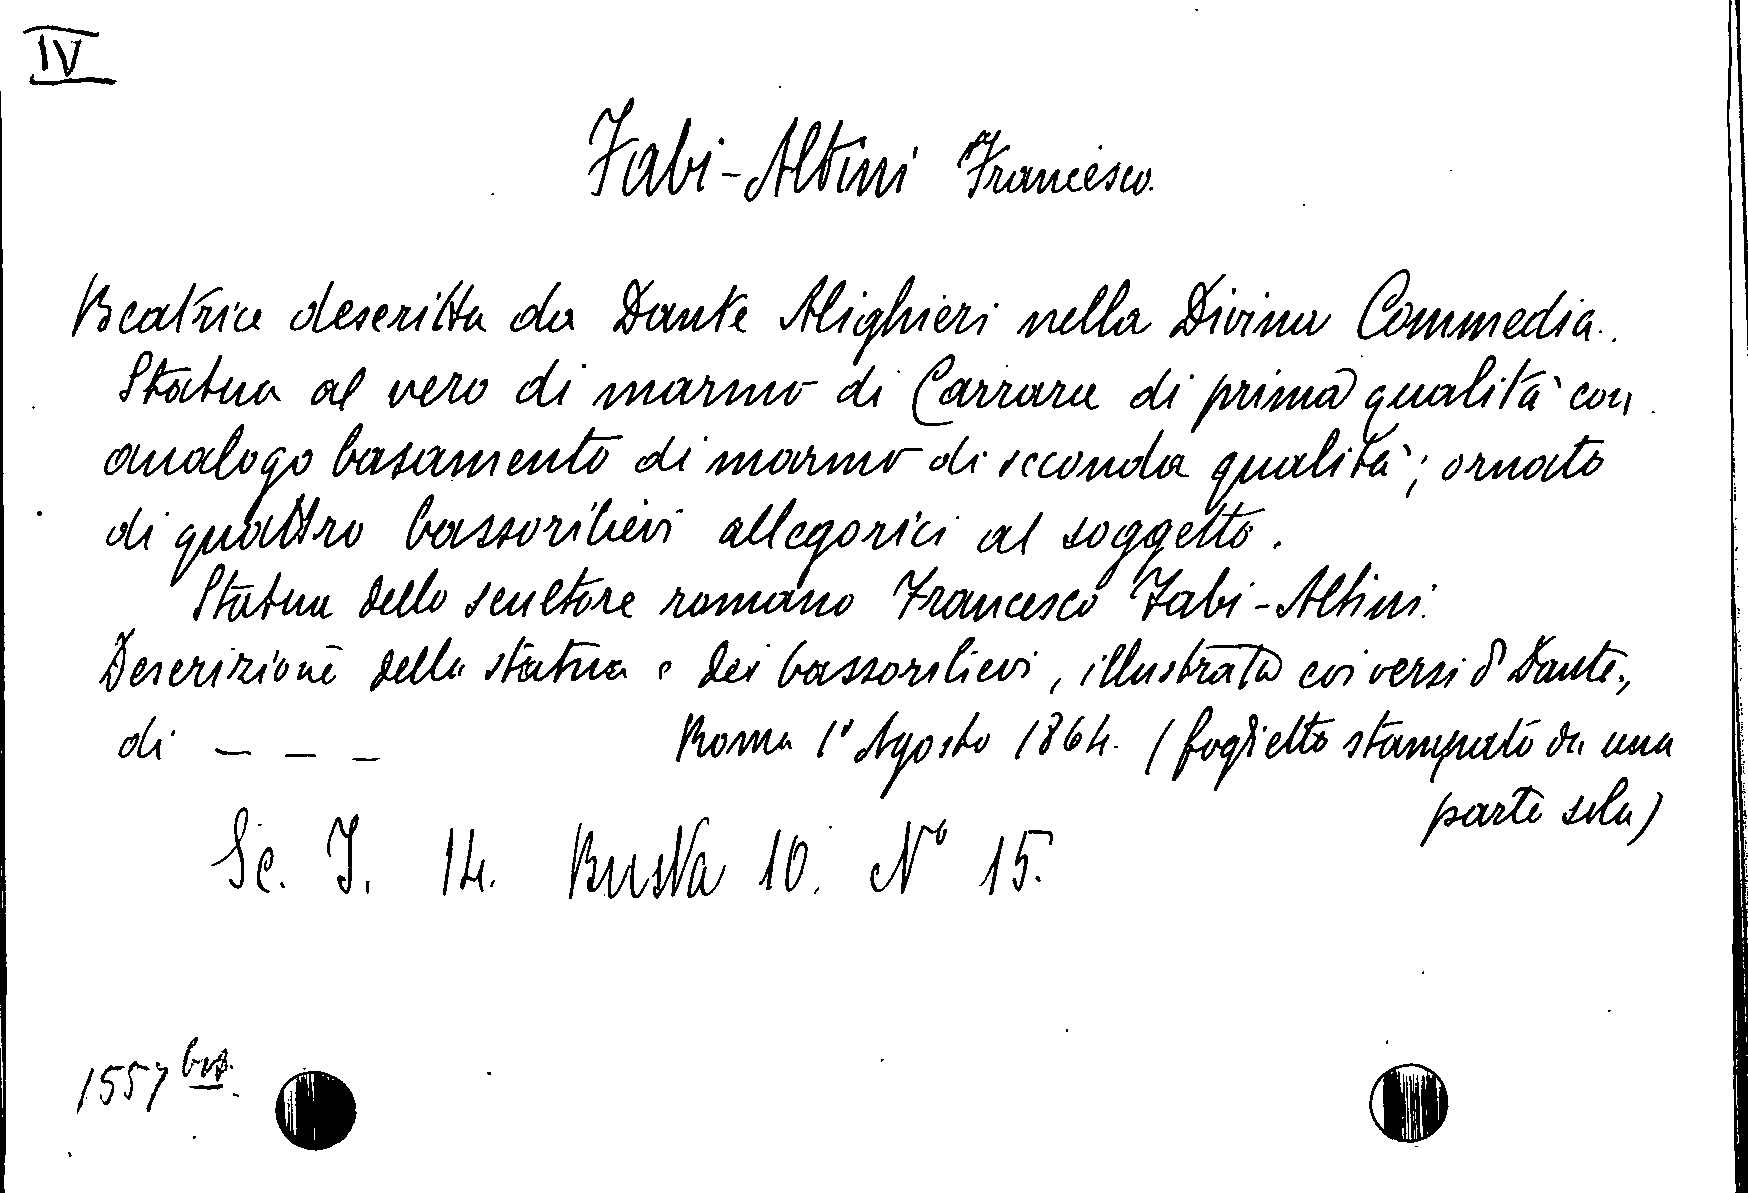 IV
Fabi-Altini Francesco.
Beatrice descritta da Dante Alighieri nella Divina Commedia.
Statua al vero di marmo di Carrara di prima qualità con
analogo basamento di marmo di seconda qualità; ornato
di quattro bassorilievi allegorici al soggetto.
Statua dello scultore romano Francesco Fabi-Altini.
Descrizione della statua e dei bassorilievi, illustrata coi versi di Dante,
di _ _ _ Roma 1° Agosto 1864. (foglietto stampato da una
parte sola)
Sc. I. 14. Busta 10. N° 15.
1557 bis.